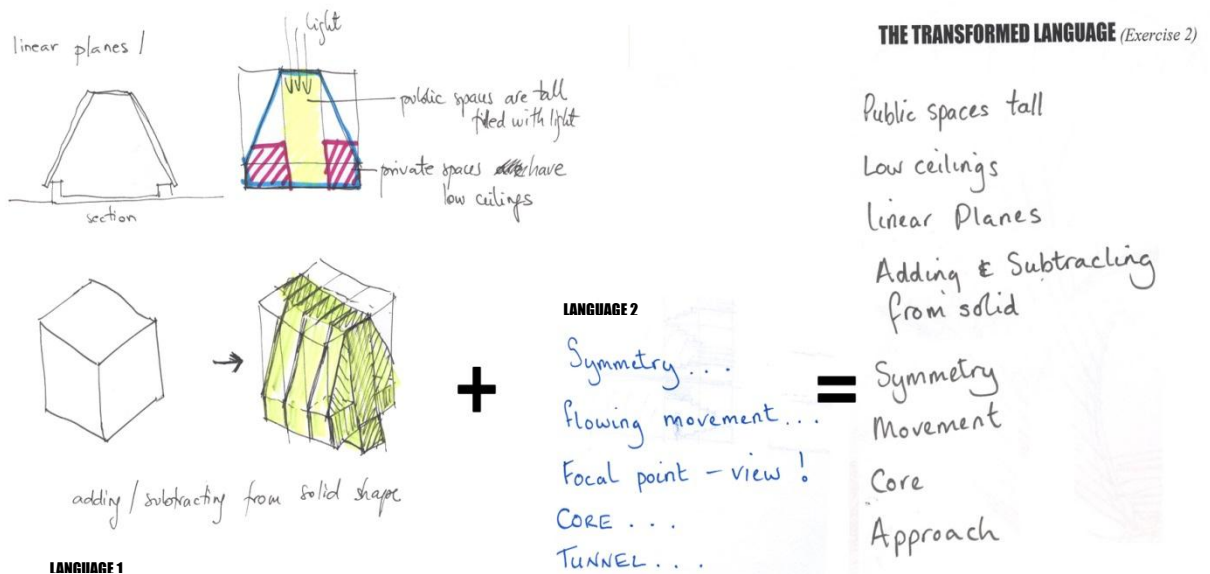 linear planes /
section
light
public spaces are tall
filled with light
private spaces have
low ceilings
adding / subtracting from solid shape
LANGUAGE 1
+
LANGUAGE 2
Symmetry...
flowing movement...
Focal point - view!
CORE...
TUNNEL...
=
THE TRANSFORMED LANGUAGE (Exercise 2)
Public spaces tall
Low ceilings
Linear Planes
Adding & Subtracting
from solid
Symmetry
Movement
Core
Approach